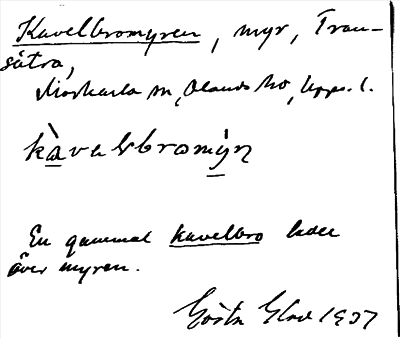 Kavelbromyren, myr, Tran-
sätra,
Morkarla sn, Olands hd, Upps. l.
kàvelsbromy̌n
En gammal kavelbro leder
över myren.
Gösta Glad 1937